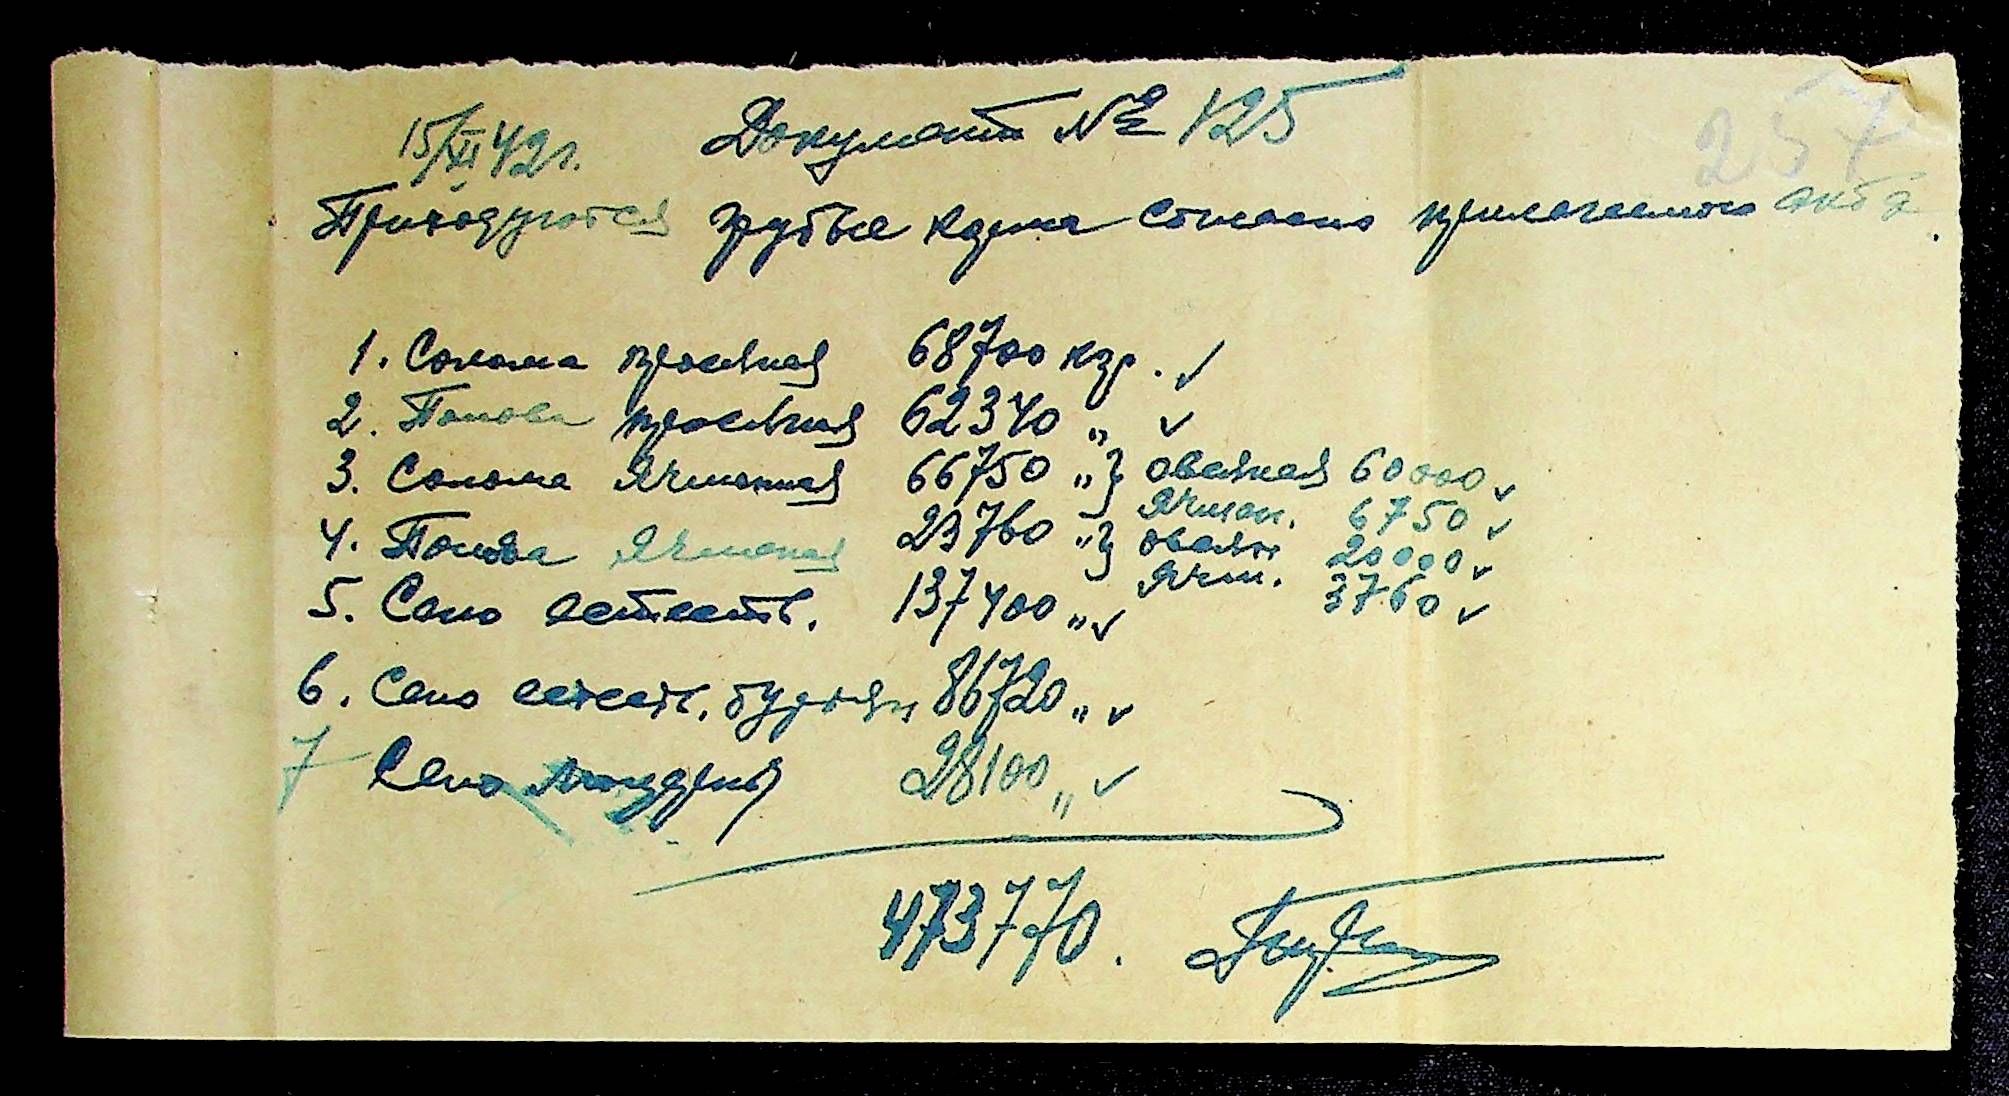 257
15/XI 42 г. Документ № 125
Приходуются грубые корма согласно прилагаемого акта
1. Солома просяная 68700 кгр. ✓
2. Полова просяная 62340 „ ✓
3. Солома Ячменная 66750 „ } овсяная 60000 ✓
Ячмен. 6750 ✓
4. Полова Ячменая 23760 „ } овсян 20000 ✓
Ячм. 3760 ✓
5. Сено естеств. 137400 „ ✓
6. Сено естеств. бурьян 86720 „ ✓
7 Сено люцерны 28100 „ ✓
473770.